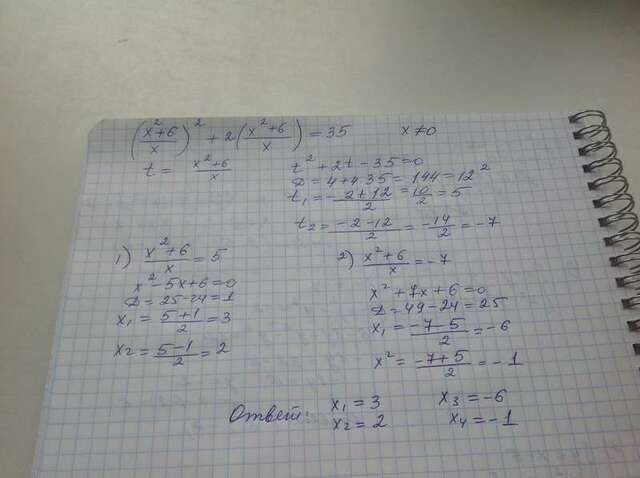 ((x²+6)/x)² + 2((x²+6)/x) = 35 x ≠ 0
t = (x²+6)/x t² + 2t - 35 = 0
D = 4 + 4·35 = 144 = 12²
t₁ = (-2+12)/2 = 10/2 = 5
t₂ = (-2-12)/2 = -14/2 = -7
1) (x²+6)/x = 5
x² - 5x + 6 = 0
D = 25 - 24 = 1
x₁ = (5+1)/2 = 3
x₂ = (5-1)/2 = 2
2) (x²+6)/x = -7
x² + 7x + 6 = 0
D = 49 - 24 = 25
x₁ = (-7-5)/2 = -6
x² = (-7+5)/2 = -1
Ответ: x₁ = 3 x₃ = -6
x₂ = 2 x₄ = -1